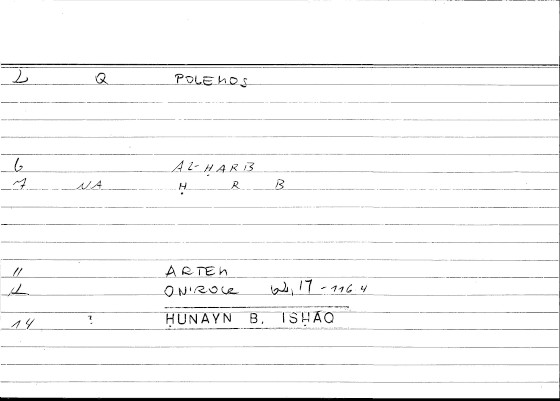 2 Q POLEMOS
6 AL-ḤARB
7 NA Ḥ R B
11 ARTEM
ONIROCR 17-116 4
14 : ḤUNAYN B. ISḤĀQ